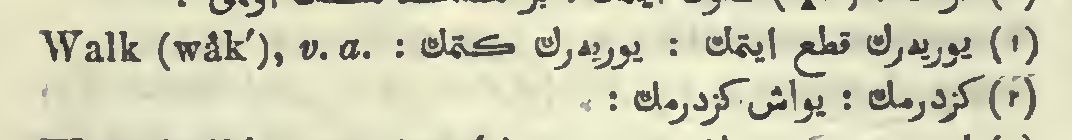 Walk (wâk′), v. a. : (١) يوريه‌رك قطع ايتمك : يوريه‌رك كتمك
(٢) كزدرمك : يواش كزدرمك :